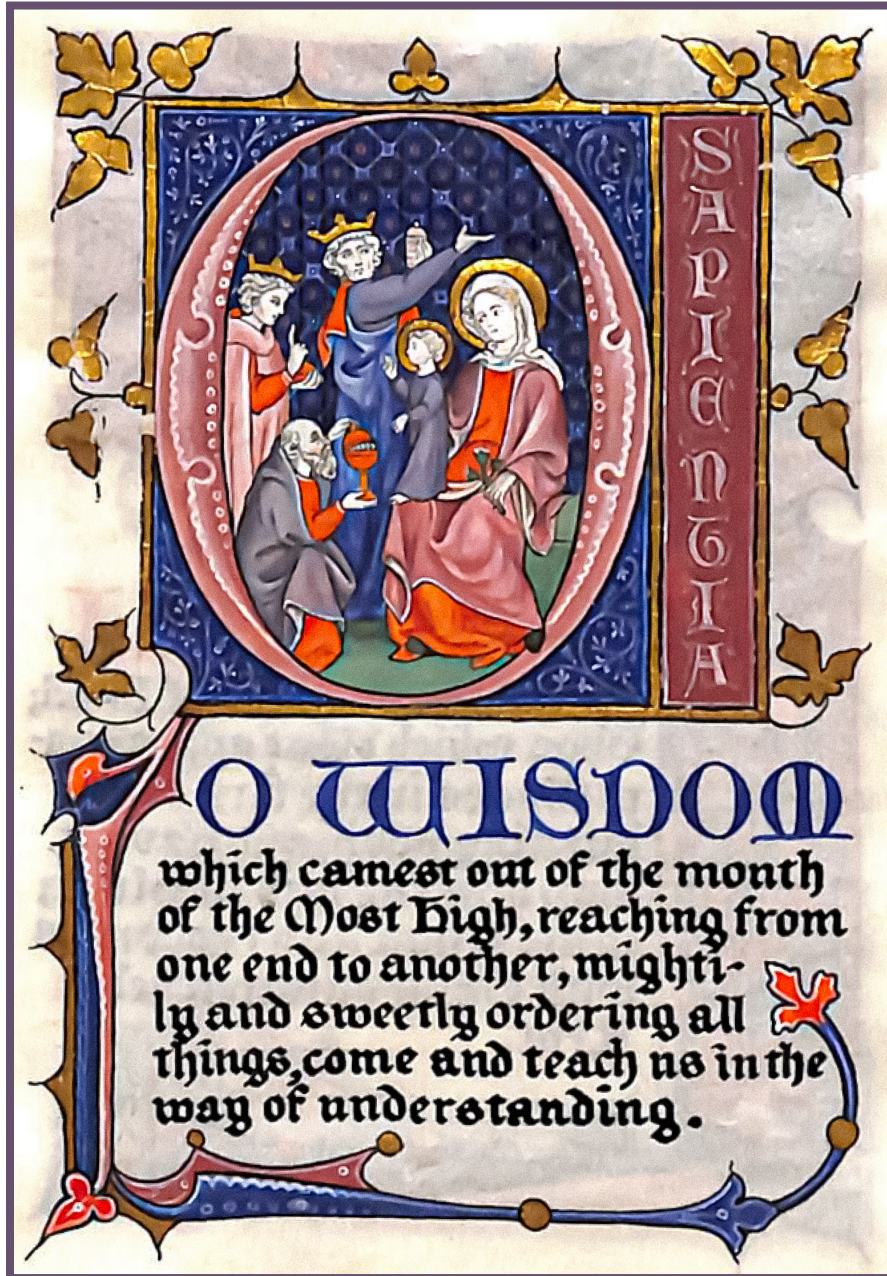 O SAPIENTIA
O WISDOM
which camest out of the mouth
of the Most High, reaching from
one end to another, mighti-
ly and sweetly ordering all
things, come and teach us in the
way of understanding.